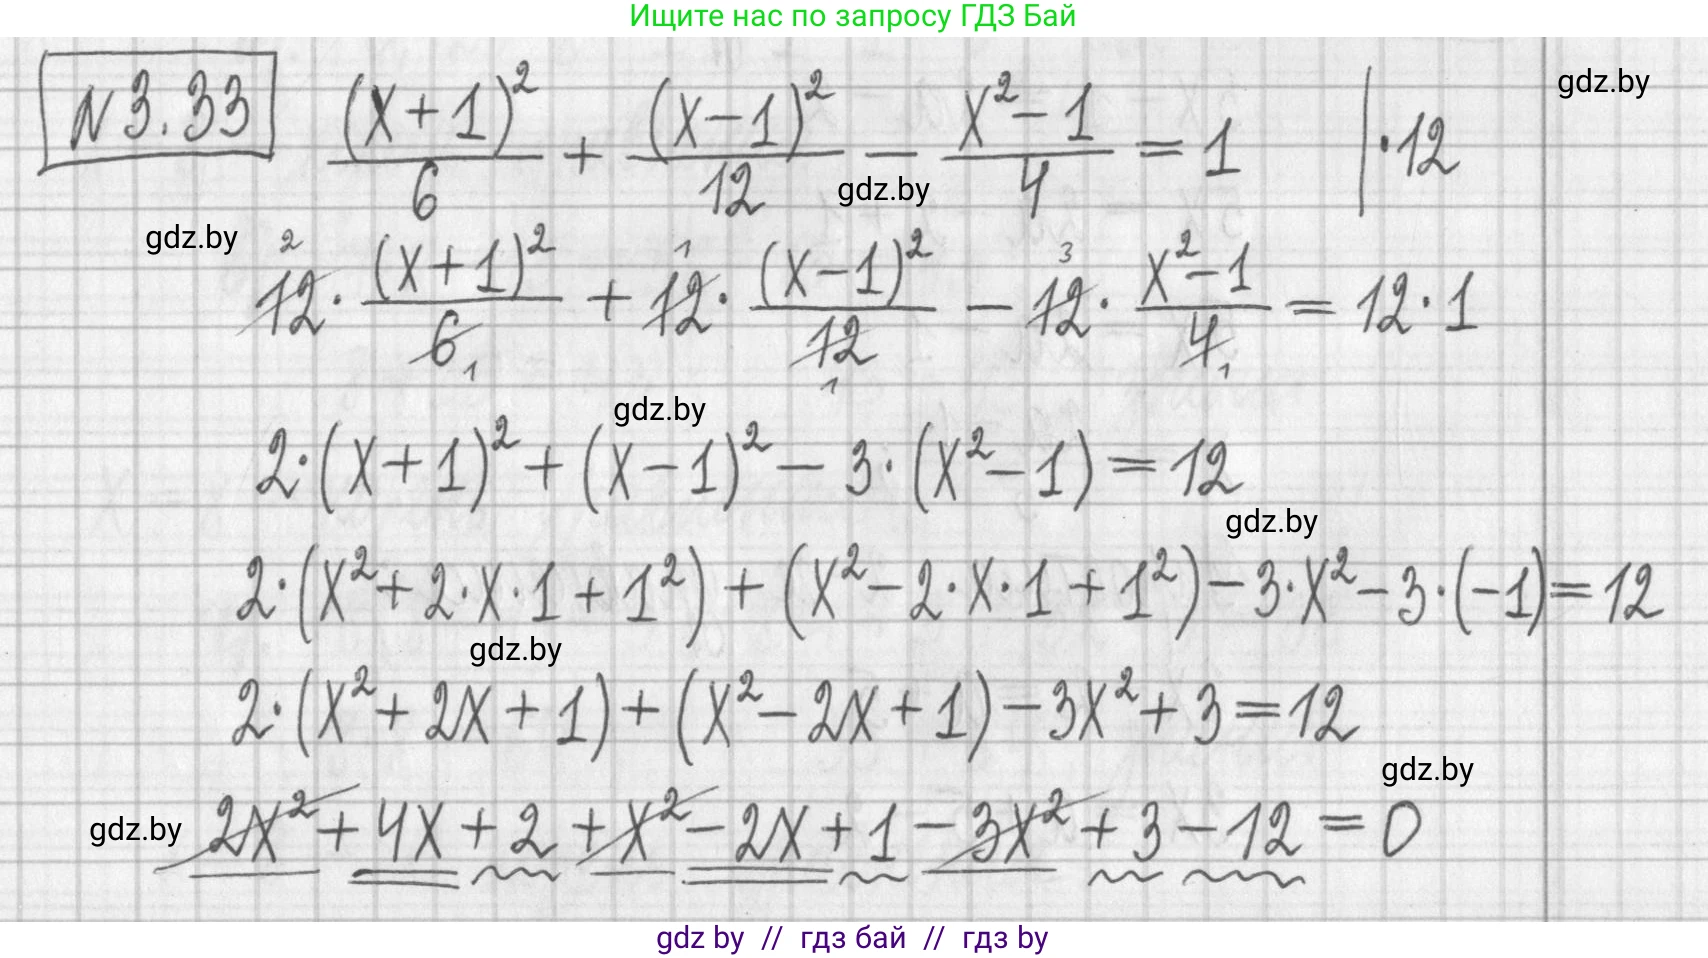 Ищите нас по запросу ГДЗ Бай
N 3.33 (x+1)²/6 + (x-1)²/12 - x²-1/4 = 1 | ·12
gdz.by
gdz.by
gdz.by
12 · (x+1)²/6 + 12 · (x-1)²/12 - 12 · x²-1/4 = 12 · 1
2 1 3
1 1 1
gdz.by
2·(x+1)² + (x-1)² - 3·(x²-1) = 12
gdz.by
2·(x²+2·x·1+1²) + (x²-2·x·1+1²) - 3·x² - 3·(-1) = 12
gdz.by
2·(x²+2x+1) + (x²-2x+1) - 3x² + 3 = 12
gdz.by
gdz.by 2x² + 4x + 2 + x² - 2x + 1 - 3x² + 3 - 12 = 0
gdz by // гдз бай // гдз by